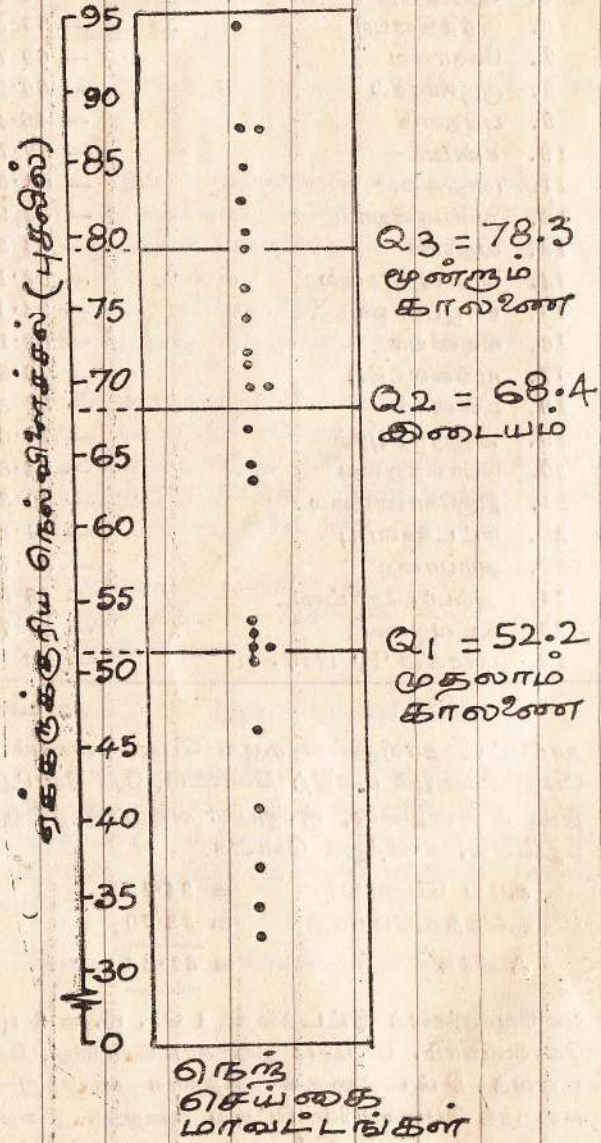 95
90
85
80
75
70
65
60
55
50
45
40
35
30
0
ஏக்கருக்குரிய நெல்விளைச்சல் (புசலில்)
Q3 = 78.3
மூன்றாம்
காலணை
Q2 = 68.4
இடையம்
Q1 = 52.2
முதலாம்
காலணை
நெற்
செய்கை
மாவட்டங்கள்